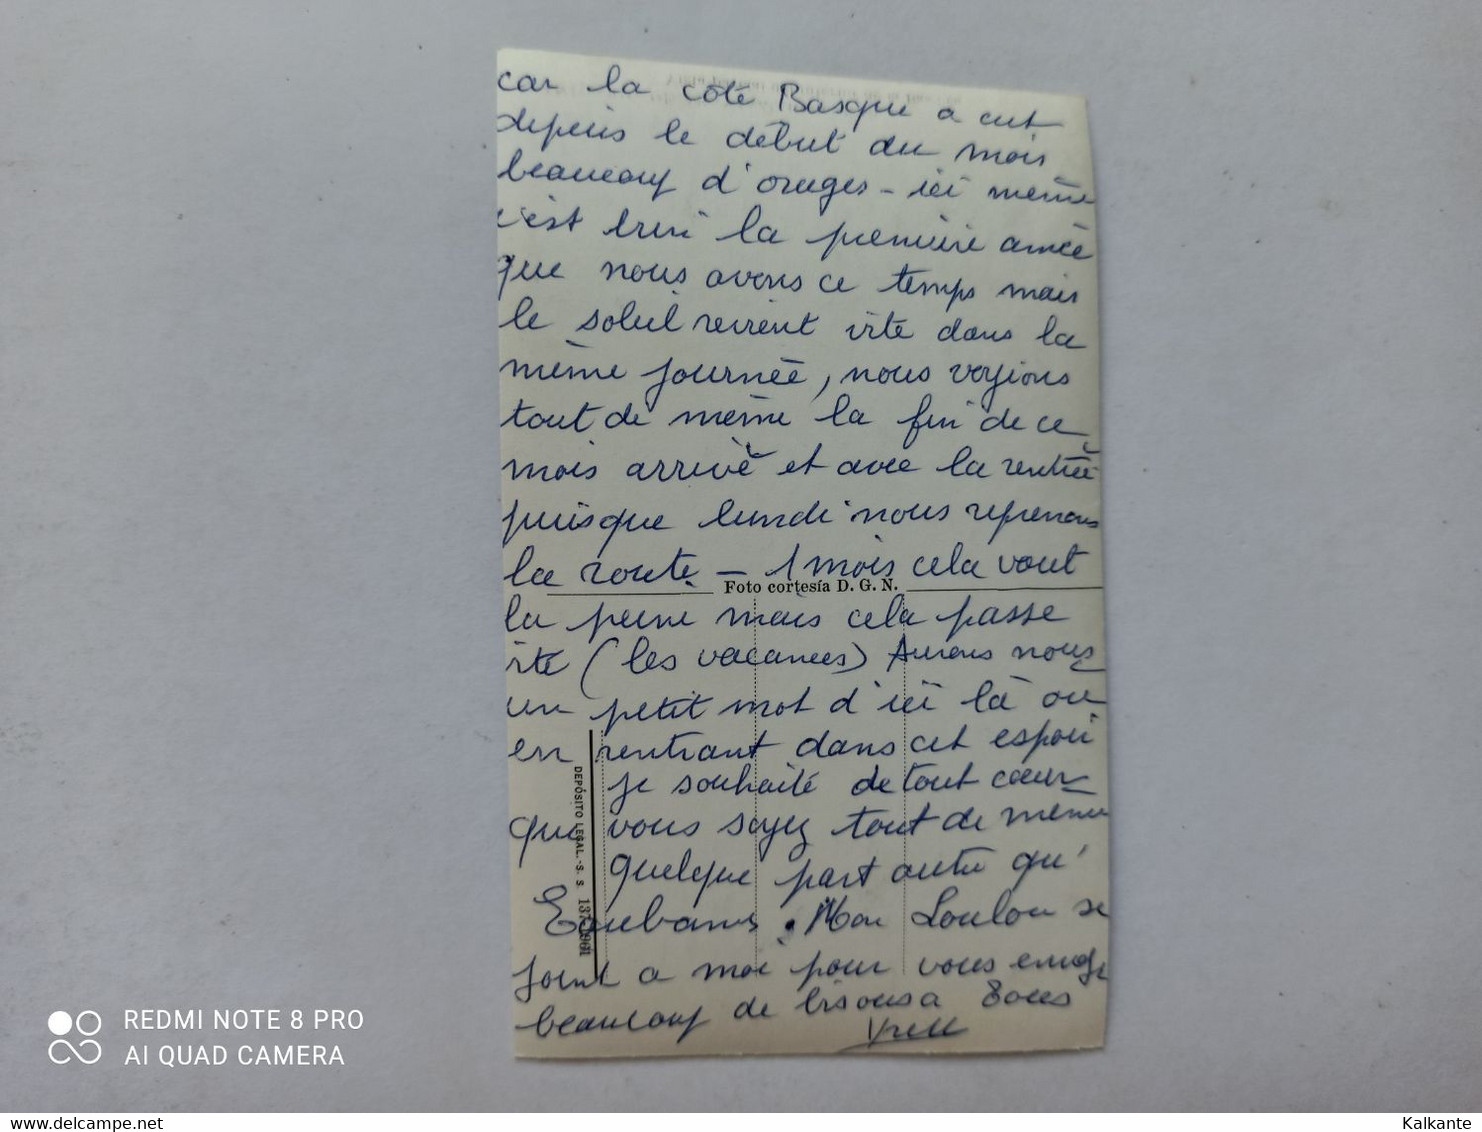 car la côte Basque a eut
depuis le début du mois
beaucoup d'orages - ici même
c'est la première année
que nous avons ce temps mais
le soleil revient vite dans la
même journée, nous voyions
tout de même la fin de ce
mois arrivé et avec la rentrée
puisque lundi nous reprenons
la route - 1 mois cela vaut
Foto cortesía D. G. N.
la peine mais cela passe
vite (les vacances) Aurons nous
un petit mot d'ici là ou
en rentrant dans cet espoir
je souhaité de tout cœur
que vous soyez tout de même
quelque part autre qu'
Mon Loulou se
joint a moi pour vous
beaucoup de bisous a Tous
DEPÓSITO LEGAL.-S. S.
REDMI NOTE 8 PRO
AI QUAD CAMERA
Kalkante